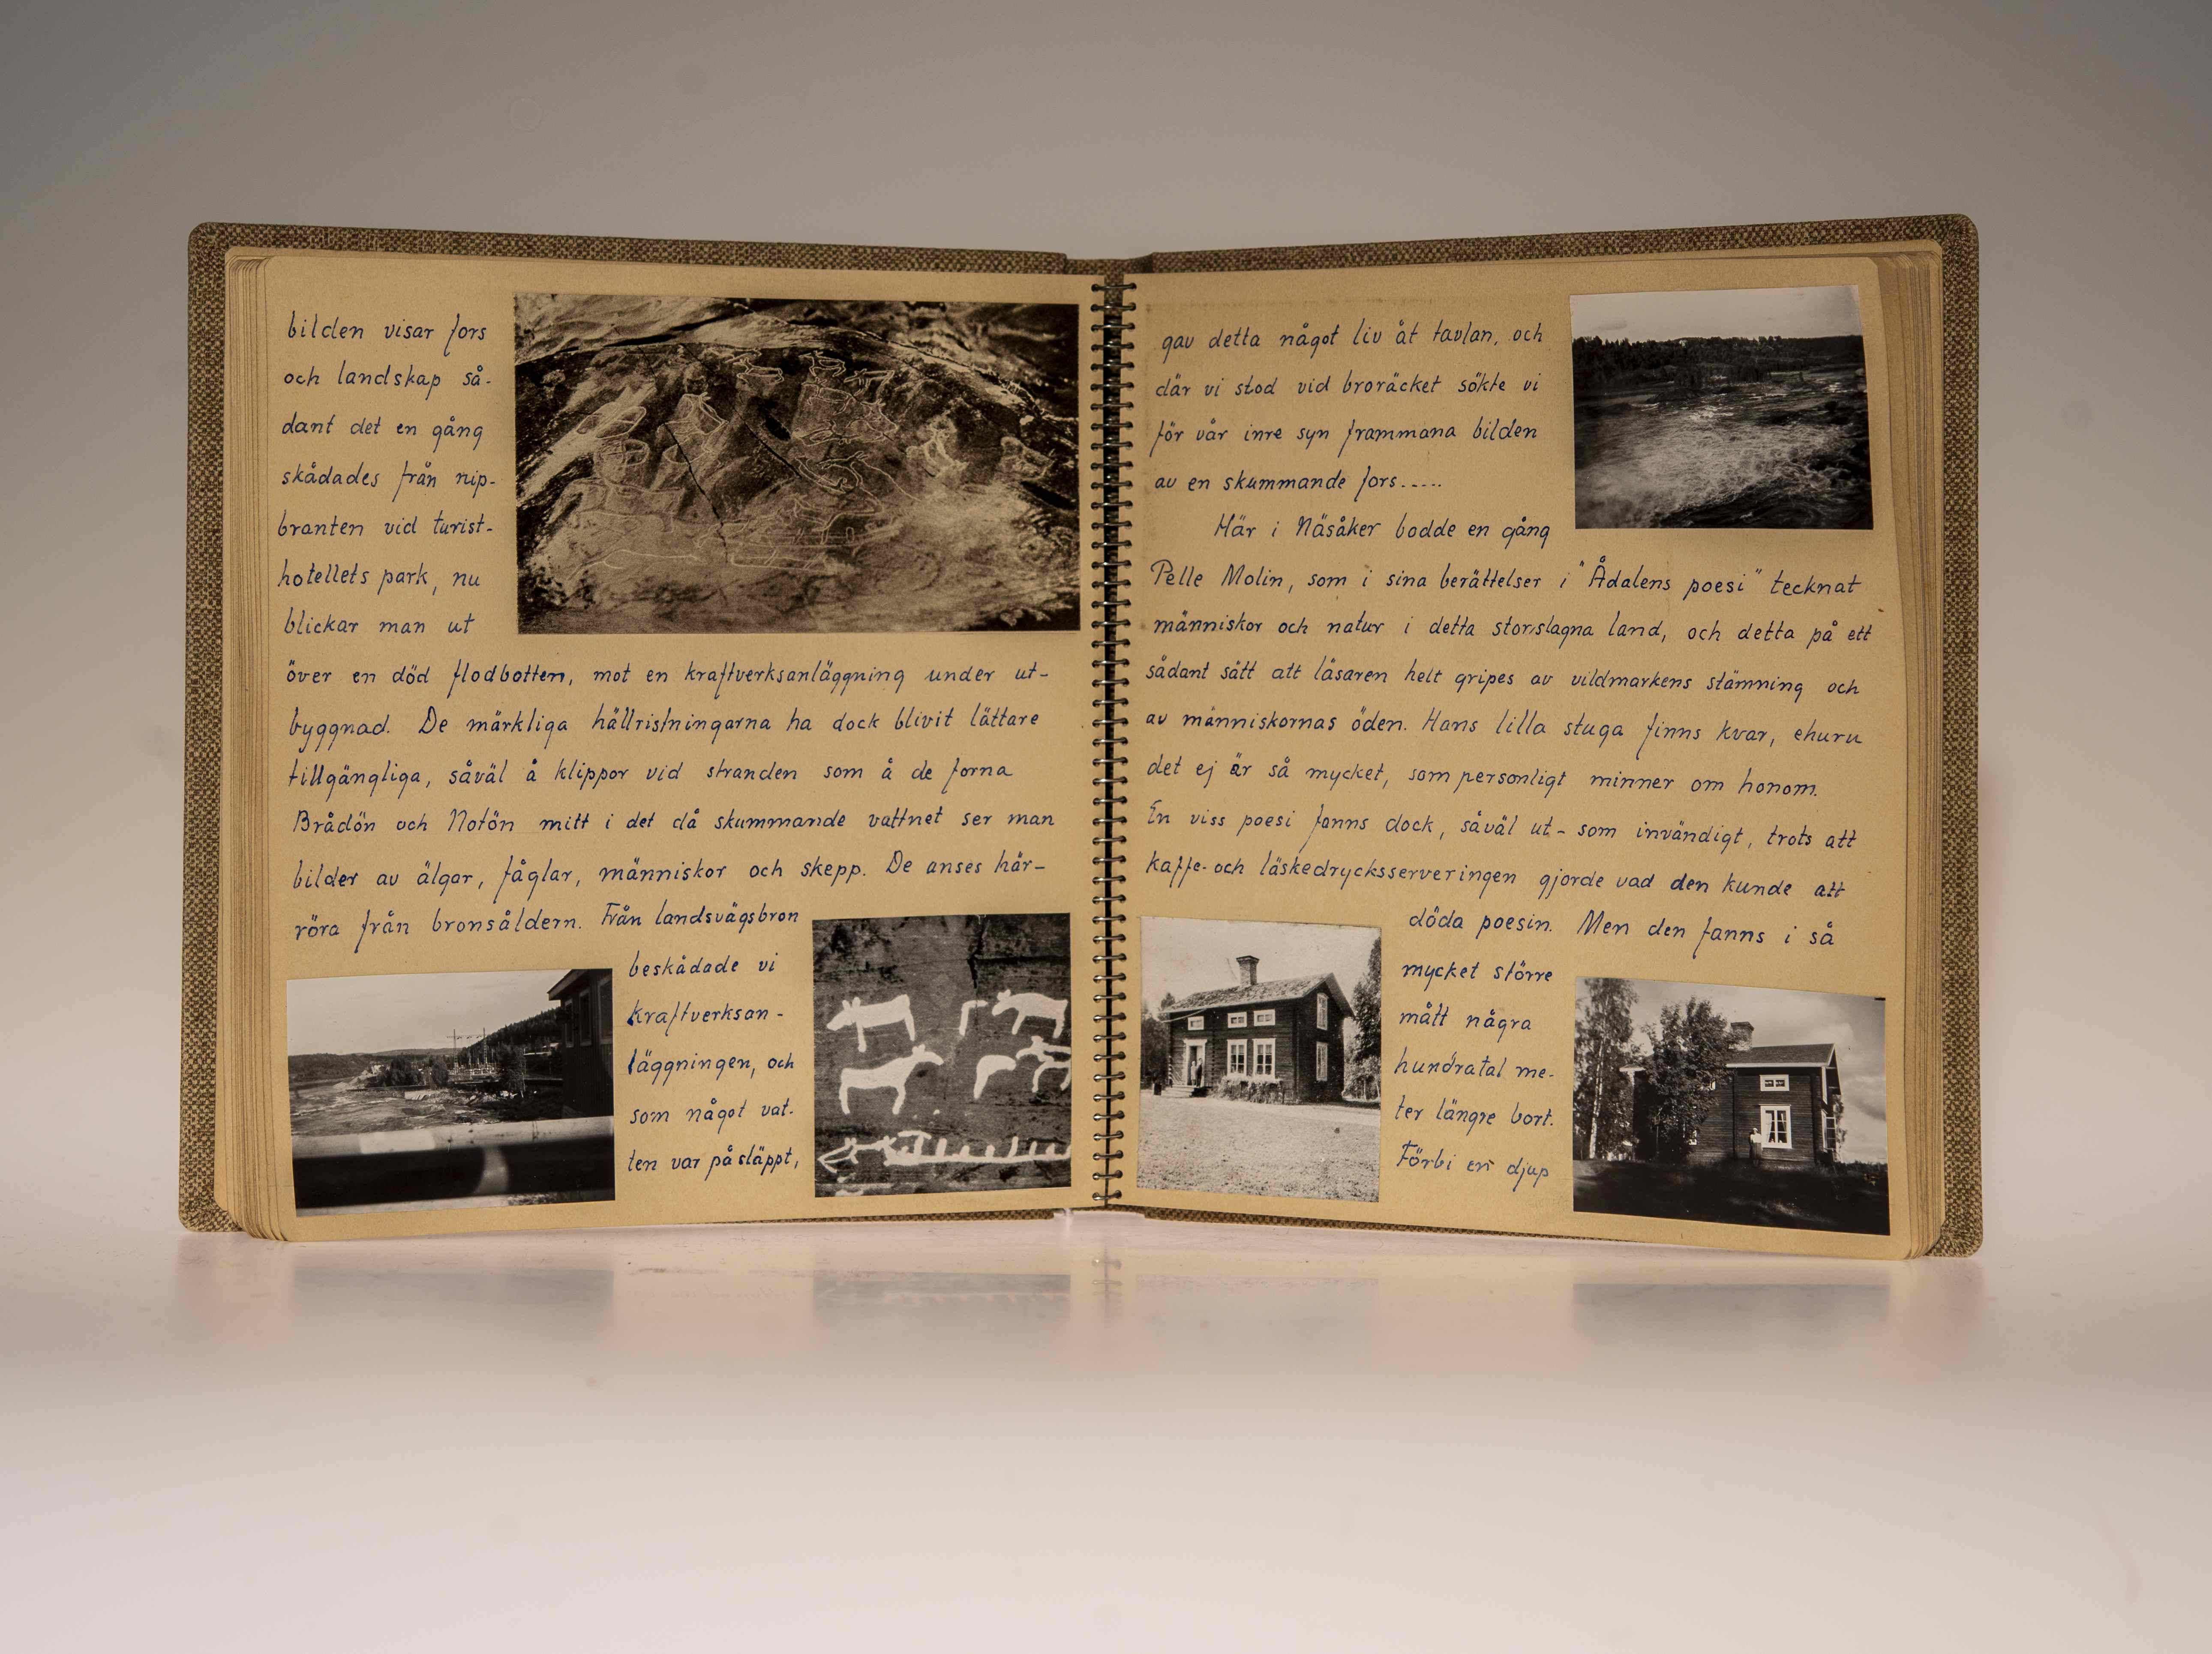 bilden visar fors
och landskap så-
dant det en gång
skådades från nip-
branten vid turist-
hotellets park, nu
blickar man ut
över en död flodbotten, mot en kraftverksanläggning under ut-
byggnad. De märkliga hällristningarna ha dock blivit lättare
tillgängliga, såväl å klippor vid stranden som å de forna
Brådön och Notön mitt i det då skummande vattnet ser man
bilder av älgar, fåglar, människor och skepp. De anses här-
röra från bronsåldern. Från landsvägsbron
beskådade vi
kraftverksan-
läggningen, och
som något vat-
ten var påsläppt,
gav detta något liv åt tavlan, och
där vi stod vid broräcket sökte vi
för vår inre syn frammana bilden
av en skummande fors.....
Här i Näsåker bodde en gång
Pelle Molin, som i sina berättelser i "Ådalens poesi" tecknat
människor och natur i detta storslagna land, och detta på ett
sådant sätt att läsaren helt gripes av vildmarkens stämning och
av människornas öden. Hans lilla stuga finns kvar, ehuru
det ej är så mycket, som personligt minner om honom.
En viss poesi fanns dock, såväl ut- som invändigt, trots att
kaffe- och läskedrycksserveringen gjorde vad den kunde att
döda poesin. Men den fanns i så
mycket större
mått några
hundratal me-
ter längre bort.
Förbi en djup